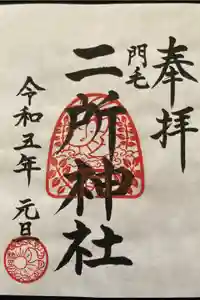 奉拝
門毛
二所神社
令和五年 元日